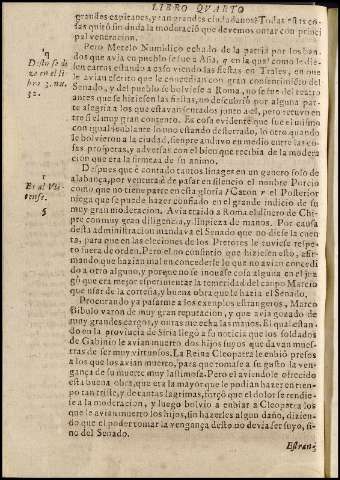 LIBRO QVARTO
grandes capitanes, y tan grandes ciudadanos? Todas estas co-
sas quitó sin duda la moderació que devemos contar con princi
pal veneracion.
Pero Metelo Numidico echado de la patria por los ban
dos que avia en pueblo se fue a Asia, y en la qual como le die-
sen cartas estando a caso viendo las fiestas en Trales, en que
le avian escrito que le concedian con gran consentimiéto del
Senado, y del pueblo se bolviese a Roma, no se fue del teatro
antes que se hiziesen las fiestas, no descubrió por alguna par-
te alegria a los que estavan sentados junto a él, pero retuvo en
tre sí el muy gran contento. Es cosa evidente que fue el mismo
con igual semblante lo uno estando desterrado, lo otro quando
le bolvieron a la ciudad, siempre anduvo en medio entre las co
sas prosperas, y adversas con el bien que recibia de la modera
cion que era la firmeza de su animo.
Despues que é contado tantos linages en un genero solo de
alabança, por ventura é de pasar en silencio el nombre Porcio
como que no tiene parte en esta gloria? Caton y el Posterior
niega que se puede hazer confiado en el grande indicio de su
muy gran moderacion. Avia traido a Roma el dinero de Chi-
pre con muy gran diligencia, y limpieza de manos. Por causa
desta administracion mandava el Senado que no diese la cuen
ta, para que en las elecciones de los Pretores le tuviese respe-
to fuera de orden. Pero él no consintió que hiziesen esto, afir-
mando que hazian mal en concederle lo que no avian concedi
do a otro alguno, y porque no se inovase cosa alguna en él juz
gó que era mejor esperimentar la temeridad del campo Marcio
que usar de la cortesia, y buena obra que le hazia el Senado.
Procurando ya pasarme a los exemplos estrangeros, Marco
Bibulo varon de muy gran reputacion, y que avia gozado de
muy grandes cargos, y otras me echa las manos. El qual estan-
do en la provincia de Siria llegó a su noticia que los soldados
de Gabinio le avian muerto dos hijos suyos que davan mues-
tras de ser muy virtuosos. La Reina Cleopatra le embió presos
a los que los avian muerto, para que tomase a su gusto la ven-
gança de su muerte muy lastimosa. Pero él aviendole ofrecido
esta buena obra, que era la mayor que le podian hazer en tiem-
po tan triste, y de tantas lagrimas, forçó que el dolor se rendie-
se a la moderacion, y luego bolvio a enbiar a Cleopatra los
que le avian muerto los hijos, sin hazerles algun daño, dizien-
do que el poder tomar la vengança desto no devia ser suyo, si-
no del Senado.
Estran-
9
Desto se di
ze en el li-
bro 3. nu.
32.
1
Es al Vti-
cense.
§